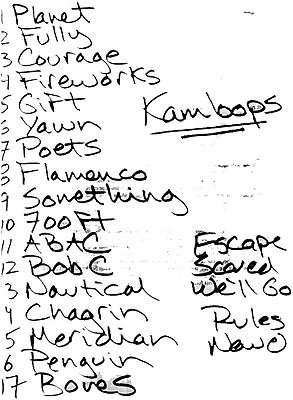 1 Planet
2 Fully
3 Courage
4 Fireworks
5 Gift
6 Yawn
7 Poets
8 Flamenco
9 Something
10 700 Ft
11 ABAC
12 Bob C
3 Nautical
4 Chagrin
5 Meridian
6 Penguin
17 Bones
Kamloops
Escape
Scared
We'll Go
Rules